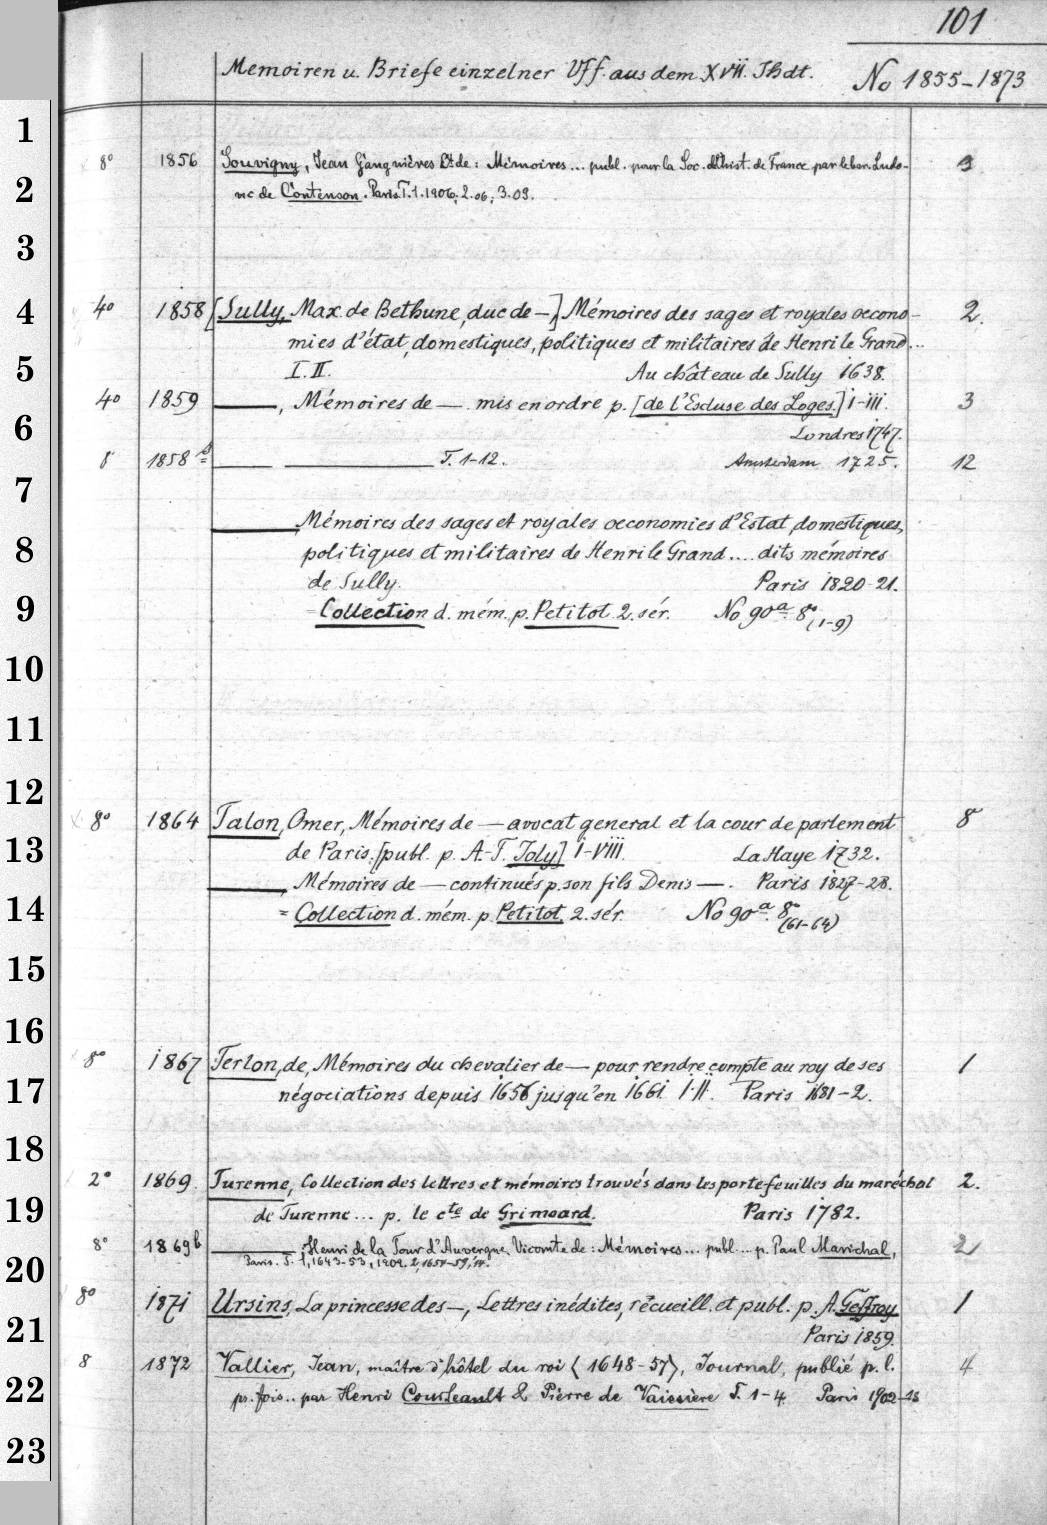 101
Memoiren u. Briefe einzelner Vff. aus dem XVII. Jhdt. No 1855-1873
1
8° 1856 Souvigny, Jean Gangnières Cte de: Mémoires ... publ. pour la Soc. de l'hist. de France par le bon. Ludo- 3
2
vic de Contenson. Paris T. 1. 1906; 2. 06; 3. 09.
3
4
4° 1858 [Sully, Max. de Bethune, duc de —,] Mémoires des sages et royales oecono- 2.
mies d'état, domestiques, politiques et militaires de Henri le Grand...
5
I. II. Au château de Sully 1638.
4° 1859 ———, Mémoires de — mis en ordre p. [de l'Escluse des Loges.] I-III. 3
6
Londres 1747.
8 1858 ——— ——— T. 1-12. Amsterdam 1725. 12
7
———, Mémoires des sages et royales oeconomies d'Estat, domestiques,
8
politiques et militaires de Henri le Grand .... dits mémoires
de Sully. Paris 1820-21.
9
= Collection d. mém. p. Petitot 2. sér. No 90a 8° (1-9)
10
11
12
8° 1864 Talon, Omer, Mémoires de — avocat general et la cour de parlement 8
13
de Paris. [publ. p. A.-F. Joly] I-VIII. La Haye 1732.
———, Mémoires de — continués p. son fils Denis —. Paris 1827-28.
14
= Collection d. mém. p. Petitot, 2. sér. No 90a. 8° (61-64)
15
16
8° 1867 Terlon, de, Mémoires du chevalier de — pour rendre compte au roy de ses 1
17
négociations depuis 1656 jusqu'en 1661 I.II. Paris 1681-2.
18
2° 1869 Turenne, Collection des lettres et mémoires trouvés dans les portefeuilles du maréchal 2.
19
de Turenne ... p. le cte de Grimoard. Paris 1782.
8° 1869b ———, Henri de la Tour d'Auvergne, Vicomte de: Mémoires ... publ. ... p. Paul Marichal, 2
20
Paris. T. 1, 1643-53, 1909. 2, 1654-59, 14.
8° 1871 Ursins, La princesse des —, Lettres inédites, recueill. et publ. p. A. Geffroy 1
21
Paris 1859.
8 1872 Vallier, Jean, maître d'hôtel du roi (1648-57), Journal, publié p. l. 4
22
pr. fois .. par Henri Courteault & Pierre de Vaissière T. 1-4. Paris 1902-18
23